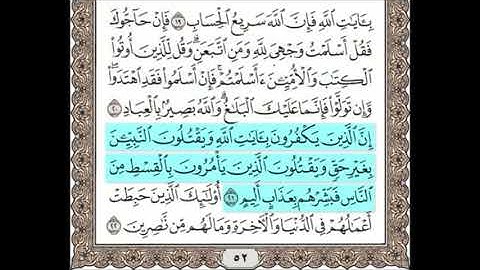 بِـَٔايَٰتِ ٱللَّهِ فَإِنَّ ٱللَّهَ سَرِيعُ ٱلْحِسَابِ ١٩ فَإِنْ حَآجُّوكَ
فَقُلْ أَسْلَمْتُ وَجْهِىَ لِلَّهِ وَمَنِ ٱتَّبَعَنِ وَقُل لِّلَّذِينَ أُوتُوا۟
ٱلْكِتَٰبَ وَٱلْأُمِّيِّـۧنَ ءَأَسْلَمْتُمْ فَإِنْ أَسْلَمُوا۟ فَقَدِ ٱهْتَدَوا۟
وَّإِن تَوَلَّوْا۟ فَإِنَّمَا عَلَيْكَ ٱلْبَلَٰغُ وَٱللَّهُ بَصِيرٌۢ بِٱلْعِبَادِ ٢٠
إِنَّ ٱلَّذِينَ يَكْفُرُونَ بِـَٔايَٰتِ ٱللَّهِ وَيَقْتُلُونَ ٱلنَّبِيِّـۧنَ
بِغَيْرِ حَقٍّ وَيَقْتُلُونَ ٱلَّذِينَ يَأْمُرُونَ بِٱلْقِسْطِ مِنَ
ٱلنَّاسِ فَبَشِّرْهُم بِعَذَابٍ أَلِيمٍ ٢١ أُو۟لَٰٓئِكَ ٱلَّذِينَ حَبِطَتْ
أَعْمَٰلُهُمْ فِى ٱلدُّنْيَا وَٱلْـَٔاخِرَةِ وَمَا لَهُم مِّن نَّٰصِرِينَ ٢٢
٥٢